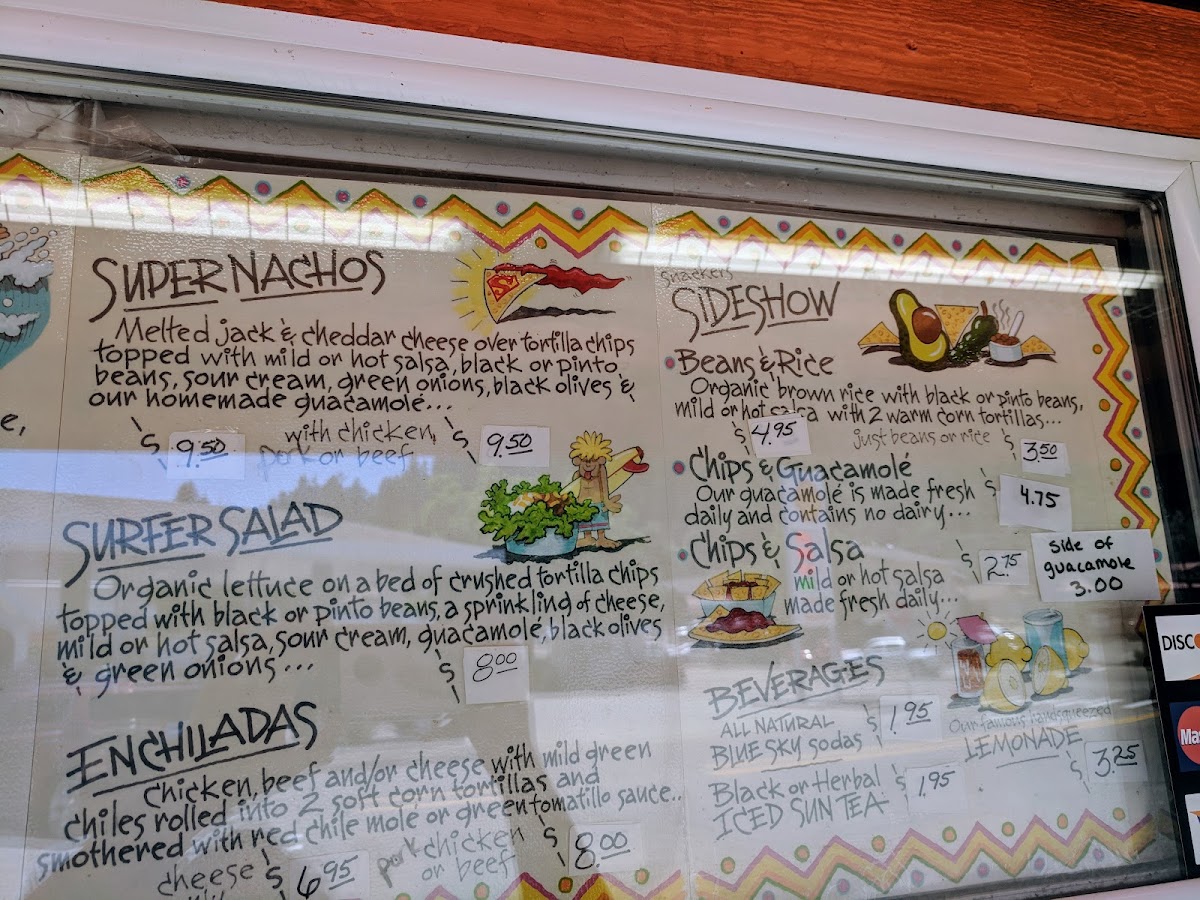 e,
SUPER NACHOS
Melted jack & cheddar cheese over tortilla chips
topped with mild or hot salsa, black or pinto
beans, sour cream, green onions, black olives &
our homemade guacamolé...
$ 9.50 with chicken, $ 9.50
pork or beef
SURFER SALAD
Organic lettuce on a bed of crushed tortilla chips
topped with black or pinto beans, a sprinkling of cheese,
mild or hot salsa, sour cream, guacamolé, black olives
& green onions...
$ 8.00
ENCHILADAS
Chicken, beef and/or cheese with mild green
chiles rolled into 2 soft corn tortillas and
smothered with red chile mole or green tomatillo sauce..
pork chicken $ 8.00
or beef
cheese $ 6.95
Snackers
SIDESHOW
• Beans & Rice
Organic brown rice with black or pinto beans,
mild or hot salsa with 2 warm corn tortillas...
$ 4.95 just beans or rice $ 3.50
• Chips & Guacamolé
Our guacamolé is made fresh $ 4.75
daily and contains no dairy...
• Chips & Salsa
mild or hot salsa $ 2.75
made fresh daily...
side of
guacamole
3.00
BEVERAGES
ALL NATURAL $ 1.95
BLUE SKY sodas
Black or Herbal $ 1.95
ICED SUN TEA
Our famous handsqueezed
LEMONADE
$ 3.25
DISCO
Mas